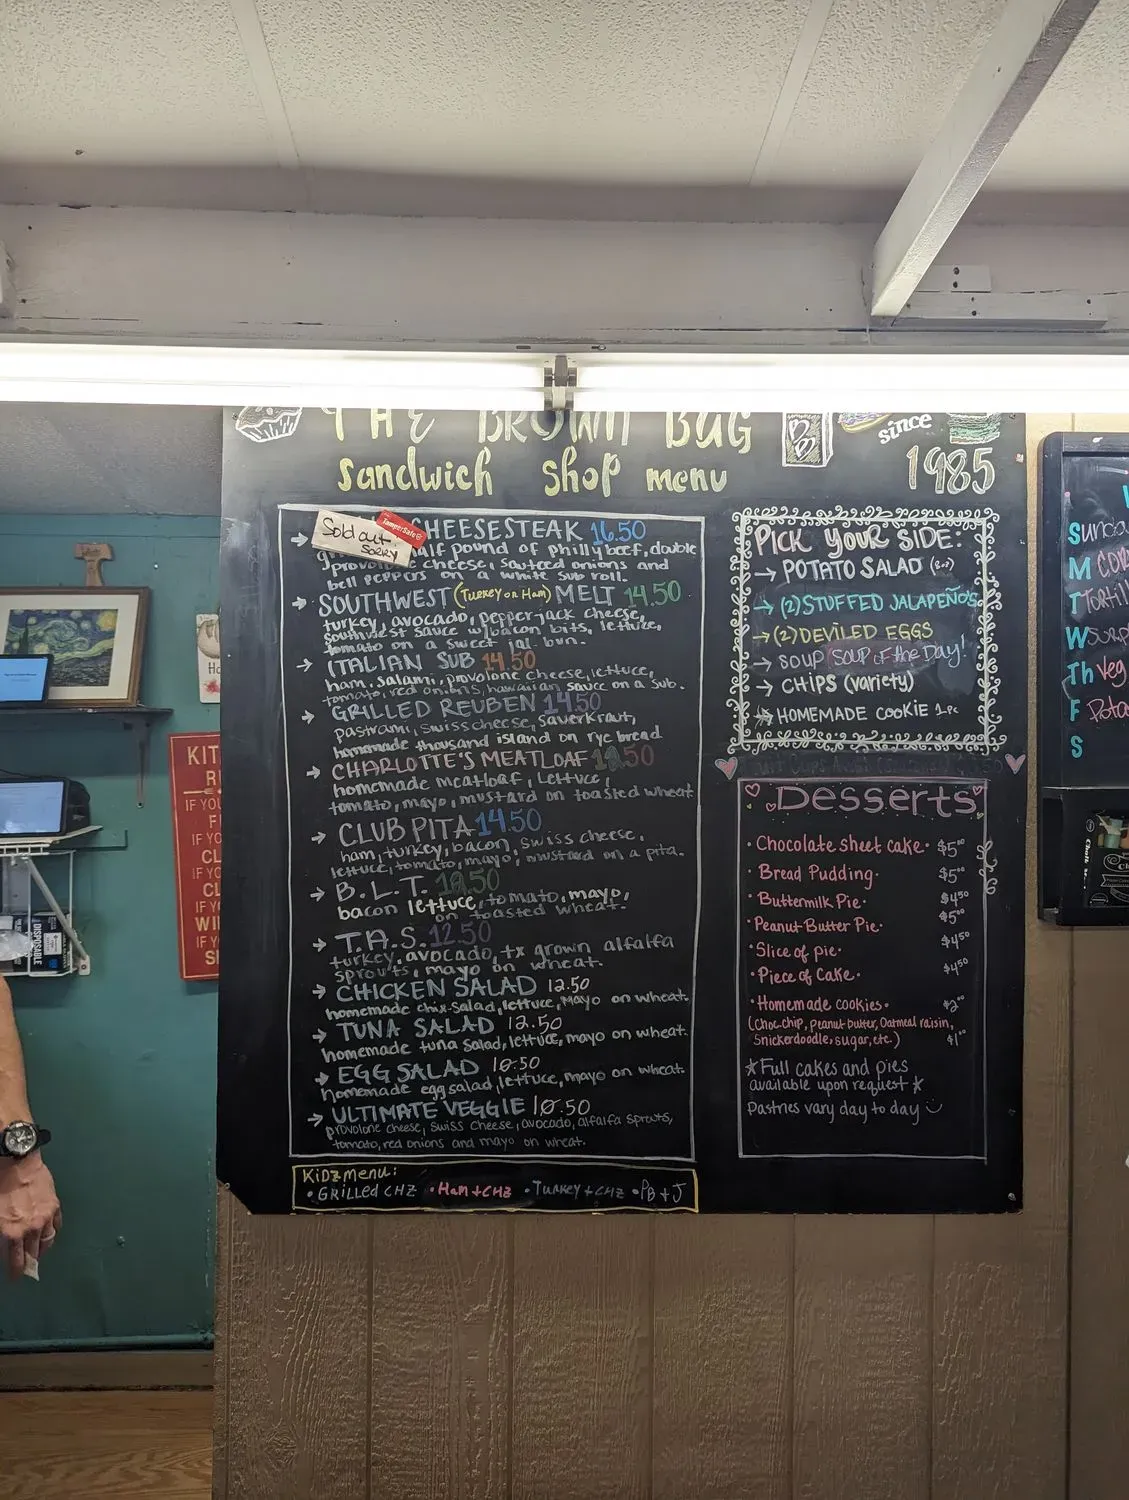 THE BROWN BAG
sandwich shop menu
since
1985
Sold out
sorry
TamperSafe
CHEESESTEAK 16.50
half pound of philly beef, double
provolone cheese, sauteed onions and
bell peppers on a white sub roll.
SOUTHWEST (Turkey or Ham) MELT 14.50
turkey, avocado, pepper-jack cheese,
southwest sauce w/bacon bits, lettuce,
tomato on a sweet jal. bun.
ITALIAN SUB 14.50
ham, salami, provolone cheese, lettuce,
tomato, red onions, hawaiian sauce on a sub.
GRILLED REUBEN 14.50
pastrami, swiss cheese, sauerkraut,
homemade thousand island on rye bread
CHARLOTTE'S MEATLOAF
homemade meatloaf, lettuce,
tomato, mayo, mustard on toasted wheat
CLUB PITA 14.50
ham, turkey, bacon, swiss cheese,
lettuce, tomato, mayo, mustard on a pita.
B.L.T.
bacon lettuce, tomato, mayo,
on toasted wheat.
T.A.S. 12.50
turkey, avocado, tx grown alfalfa
sprouts, mayo on wheat.
CHICKEN SALAD 12.50
homemade chix-salad, lettuce, mayo on wheat.
TUNA SALAD 12.50
homemade tuna salad, lettuce, mayo on wheat.
EGG SALAD 10.50
homemade egg salad, lettuce, mayo on wheat.
ULTIMATE VEGGIE 10.50
provolone cheese, swiss cheese, avocado, alfalfa sprouts,
tomato, red onions and mayo on wheat.
KiDz menu:
• GRilled CHZ • Ham + CHZ • Turkey + CHZ • PB + J
PICK YOUR SIDE:
POTATO SALAD
(2) STUFFED JALAPEÑO'S
(2) DEVILED EGGS
SOUP (SOUP of the Day!
CHIPS (variety)
HOMEMADE COOKIE 1pc
Desserts
• Chocolate sheet cake • $5.00
• Bread Pudding • $5.00
• Buttermilk Pie • $4.50
• Peanut Butter Pie • $5.00
• Slice of pie • $4.50
• Piece of Cake • $4.50
• Homemade cookies • $2.00
(Choc-chip, peanut butter, Oatmeal raisin,
Snickerdoodle, sugar, etc.)
*Full cakes and pies
available upon request *
pastries vary day to day
S
M
T
W
Th Veg
F
S
KIT
IF YOU
IF Y
CL
IF YO
CL
IF YO
WI
IF Y
DISPOSABLE